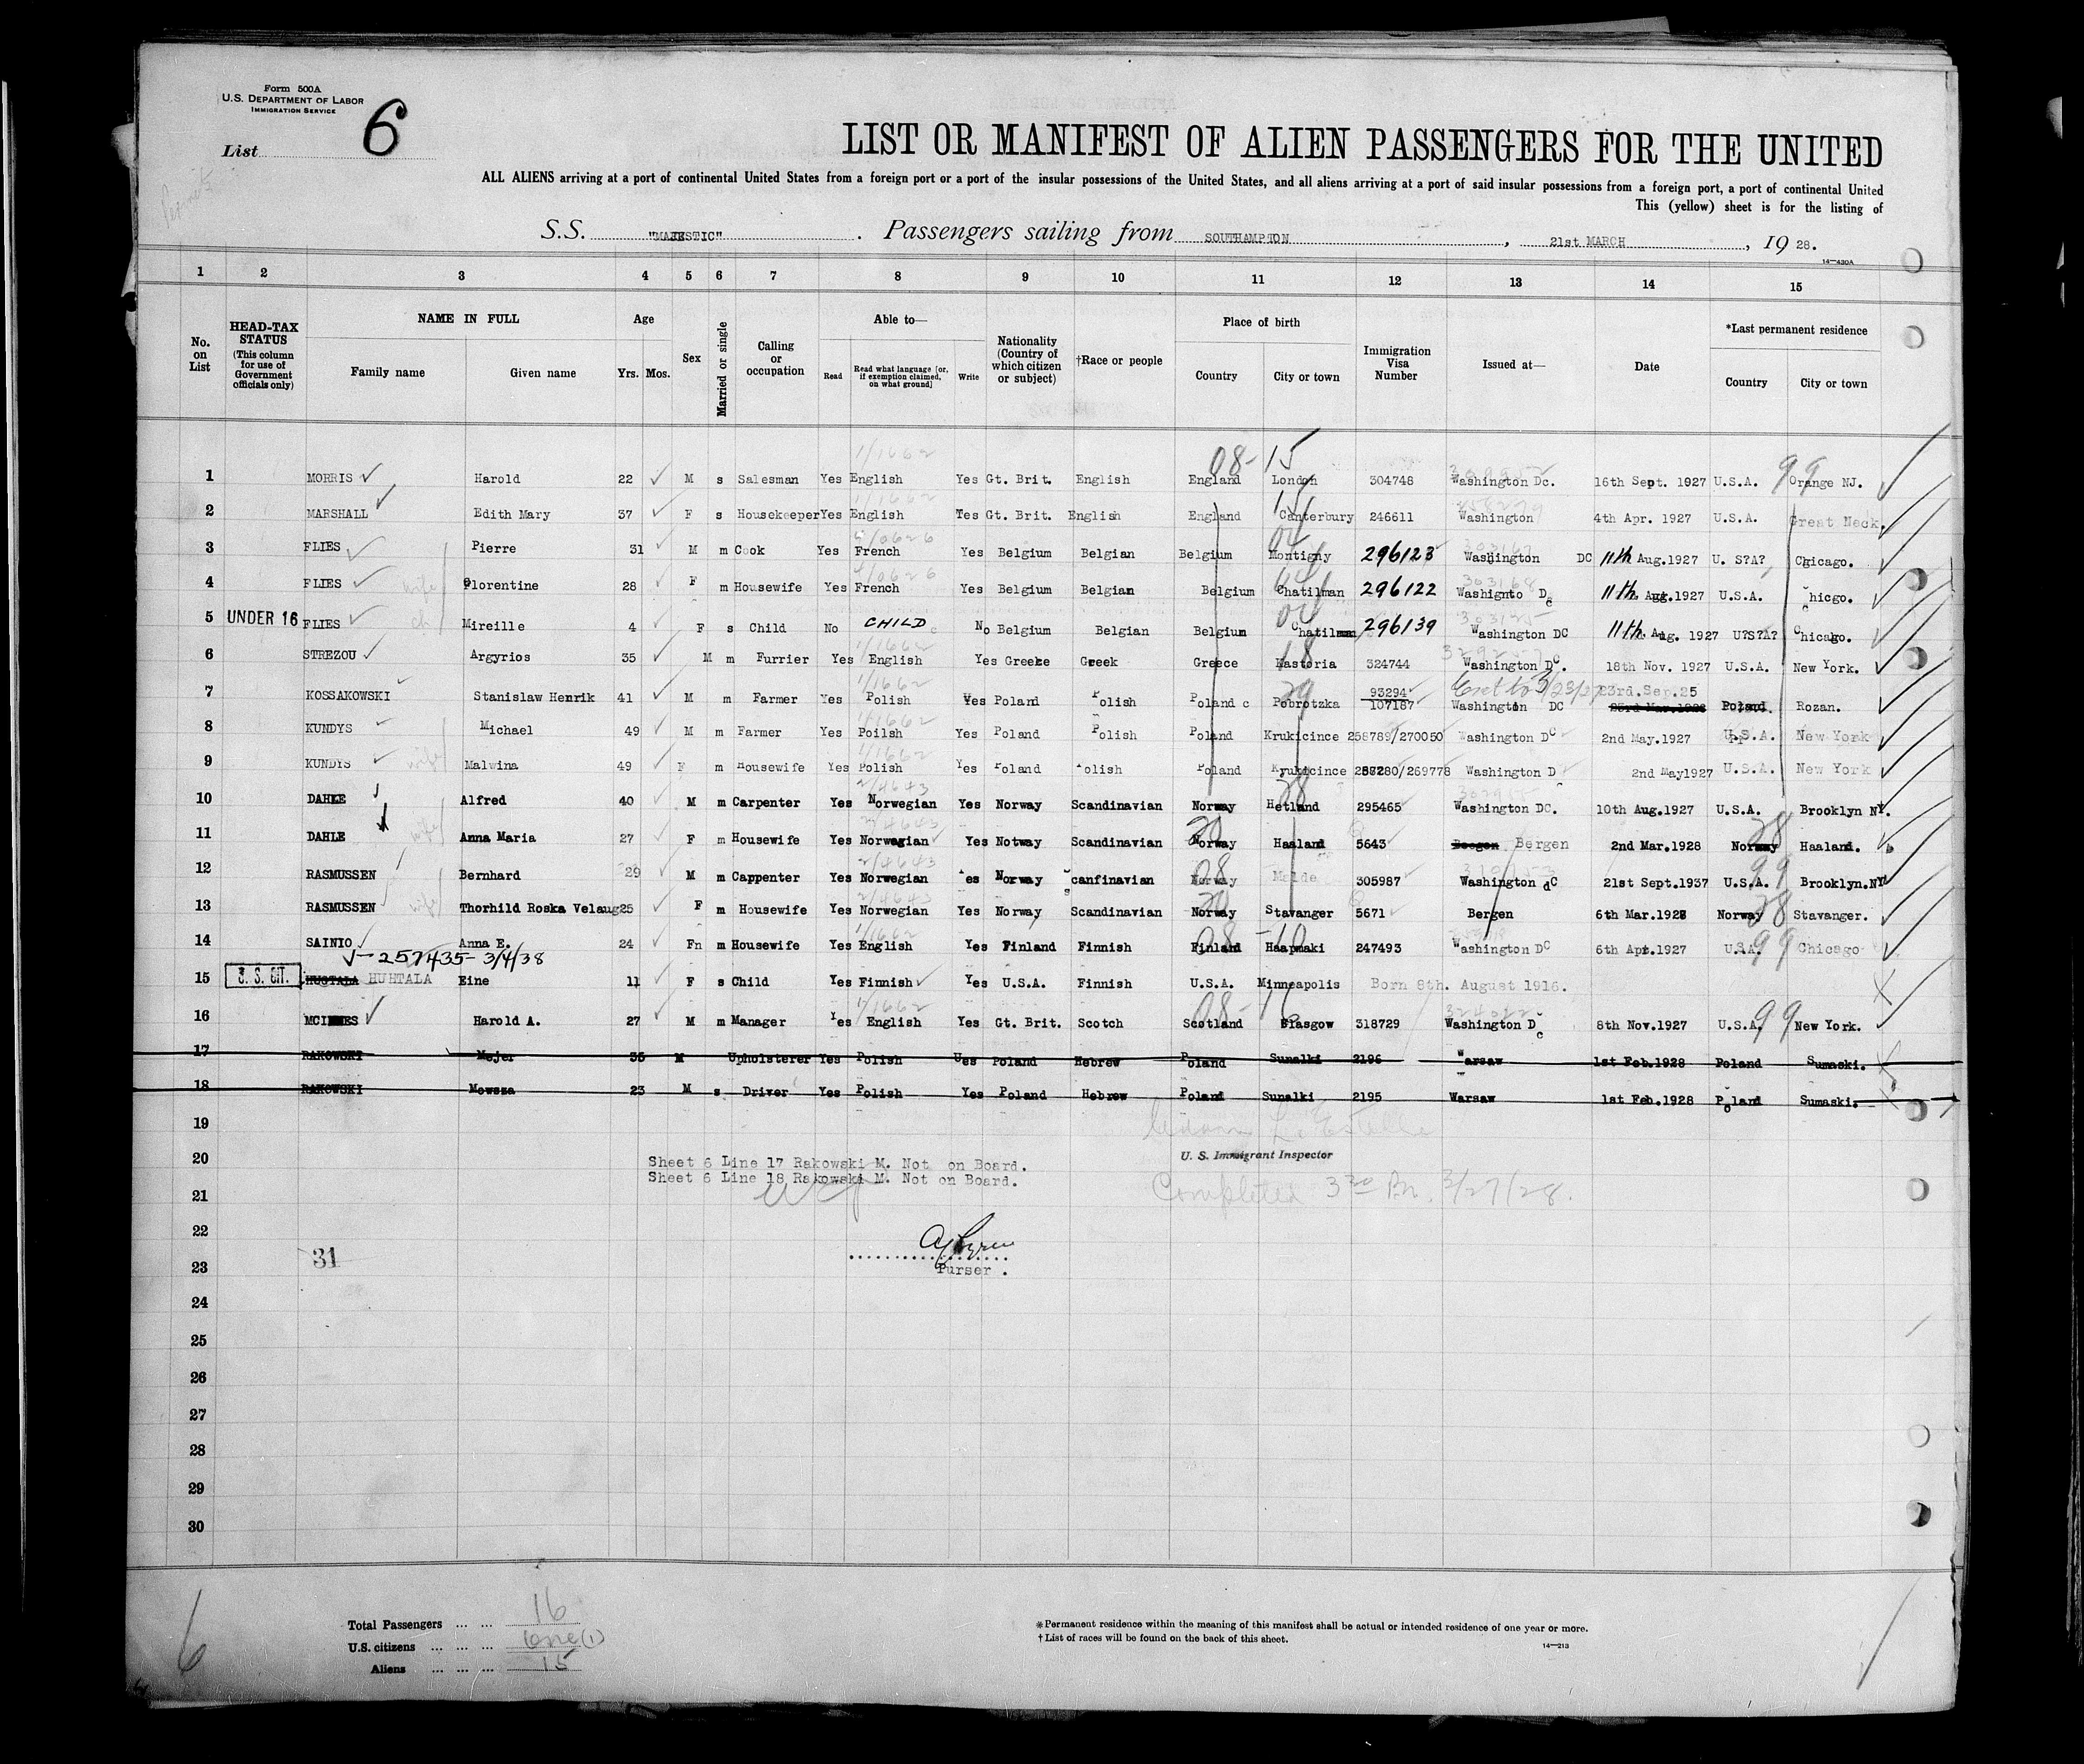 Form 500A
U.S. DEPARTMENT OF LABOR
IMMIGRATION SERVICE
List 6
LIST OR MANIFEST OF ALIEN PASSENGERS FOR THE UNITED
ALL ALIENS arriving at a port of continental United States from a foreign port or a port of the insular possessions of the United States, and all aliens arriving at a port of said insular possessions from a foreign port, a port of continental United
This (yellow) sheet is for the listing of
S.S. "MAJESTIC". Passengers sailing from SOUTHAMPTON, 21st MARCH, 19 28.
14—430A
1 2 3 4 5 6 7 8 9 10 11 12 13 14 15
No. on List
HEAD-TAX STATUS (This column for use of Government officials only)
NAME IN FULL
Family name Given name
Age
Yrs. Mos.
Sex
Married or single
Calling or occupation
Able to—
Read Read what language [or, if exemption claimed, on what ground] Write
Nationality (Country of which citizen or subject)
†Race or people
Place of birth
Country City or town
Immigration Visa Number
Issued at—
Date
*Last permanent residence
Country City or town
1/1662 08-15 99
1 MORRIS Harold 22 M s Salesman Yes English Yes Gt. Brit. English England London 304748 Washington Dc. 16th Sept. 1927 U.S.A. Orange NJ.
1/1662 15
2 MARSHALL Edith Mary 37 F s Housekeeper Yes English Yes Gt. Brit. English England Canterbury 246611 Washington 4th Apr. 1927 U.S.A. Great Neck.
04
3 FLIES Pierre 31 M m Cook Yes French Yes Belgium Belgian Belgium Montigny 296123 Washington DC 11th Aug.1927 U. S?A? Chicago.
303168
4 FLIES wife Florentine 28 F m Housewife Yes French Yes Belgium Belgian Belgium Chatilman 296122 Washignto Dc 11th Aug.1927 U.S.A. Chicgo.
04
5 UNDER 16 FLIES ch Mireille 4 F s Child No CHILD No Belgium Belgian Belgium 296139 Washington DC 11th. Aug. 1927 U?S?A? Chicago.
1/1662 18
6 STREZOU Argyrios 35 M m Furrier Yes English Yes Greece Greek Greece Kastoria 324744 Washington Dc. 18th Nov. 1927 U.S.A. New York.
1/1662 29 93294 3/23/27 23rd.Sep.25
7 KOSSAKOWSKI Stanislaw Henrik 41 M m Farmer Yes Polish Yes Poland Polish Poland c Pobrotzka 107187 Washington DC 23rd Mar.1928 Poland. Rozan.
1/1662
8 KUNDYS Michael 49 M m Farmer Yes Poilsh Yes Poland Polish Poland Krukicince 258789/270050 Washington DC 2nd May.1927 U.S.A. New York
1/1662
9 KUNDYS wife Malwina 49 F m Housewife Yes Polish Yes Poland Polish Poland Krukicince /269778 Washington D 2nd May1927 U.S.A. New York
2/4643 28
10 DAHLE Alfred 40 M m Carpenter Yes Norwegian Yes Norway Scandinavian Norway Hetland 295465 Washington DC. 10th Aug.1927 U.S.A. Brooklyn NY.
2/4643 20 28
11 DAHLE wife Anna Maria 27 F m Housewife Yes Norwegian Yes Notway Scandinavian Norway Haaland 5643 Bergen 2nd Mar.1928 Norway Haaland.
2/4643 08 99
12 RASMUSSEN Bernhard 29 M m Cappenter Yes Norwegian Yes Norway Scanfinavian Norway Malde 305987 Washington dC 21st Sept.1937 U.S.A. Brooklyn.NY
2/4643 20 28
13 RASMUSSEN wife Thorhild Roska Velaug 25 F m Housewife Yes Norwegian Yes Norway Scandinavian Norway Stavanger 5671 Bergen 6th Mar.1928 Norway Stavanger.
1/1662 08-10 99
14 SAINIO Anna E. 24 Fn m Housewife Yes English Yes Finland Finnish Finland Haapmaki 247493 Washington DC 6th Apr.1927 U.S.A. Chicago
257435 - 3/4/38
15 U. S. CIT. HUGTALA HUHTALA Eine 11 F s Child Yes Finnish Yes U.S.A. Finnish U.S.A. Minneapolis Born 8th. August 1916.
1/1662 08-16 99
16 MCINNES Harold A. 27 M m Manager Yes English Yes Gt. Brit. Scotch Scotland Glasgow 318729 Washington Dc 8th Nov.1927 U.S.A. New York.
17 RAKOWSKI Mejer 35 M Upholsterer Yes Polish Ues Poland Hebrew Poland Sunalki 2196 Warsaw 1st Feb.1928 Poland Sumaski.
18 RAKOWSKI Mowsza 23 M s Driver Yes Polish Yes Poland Hebrew Poland Sunalki 2195 Warsaw 1st Feb.1928 Poland Sumaski.
19
20 Sheet 6 Line 17 Rakowski M. Not on Board. U. S. Immigrant Inspector
Sheet 6 Line 18 Rakowski M. Not on Board.
21 Completed 3 30 Pm. 3/27/28.
22
31
23 Purser .
24
25
26
27
28
29
30
6
Total Passengers ... ... 16
U.S. citizens ... ... ... one (1)
Aliens ... ... ... 15
*Permanent residence within the meaning of this manifest shall be actual or intended residence of one year or more.
†List of races will be found on the back of this sheet.
14—213